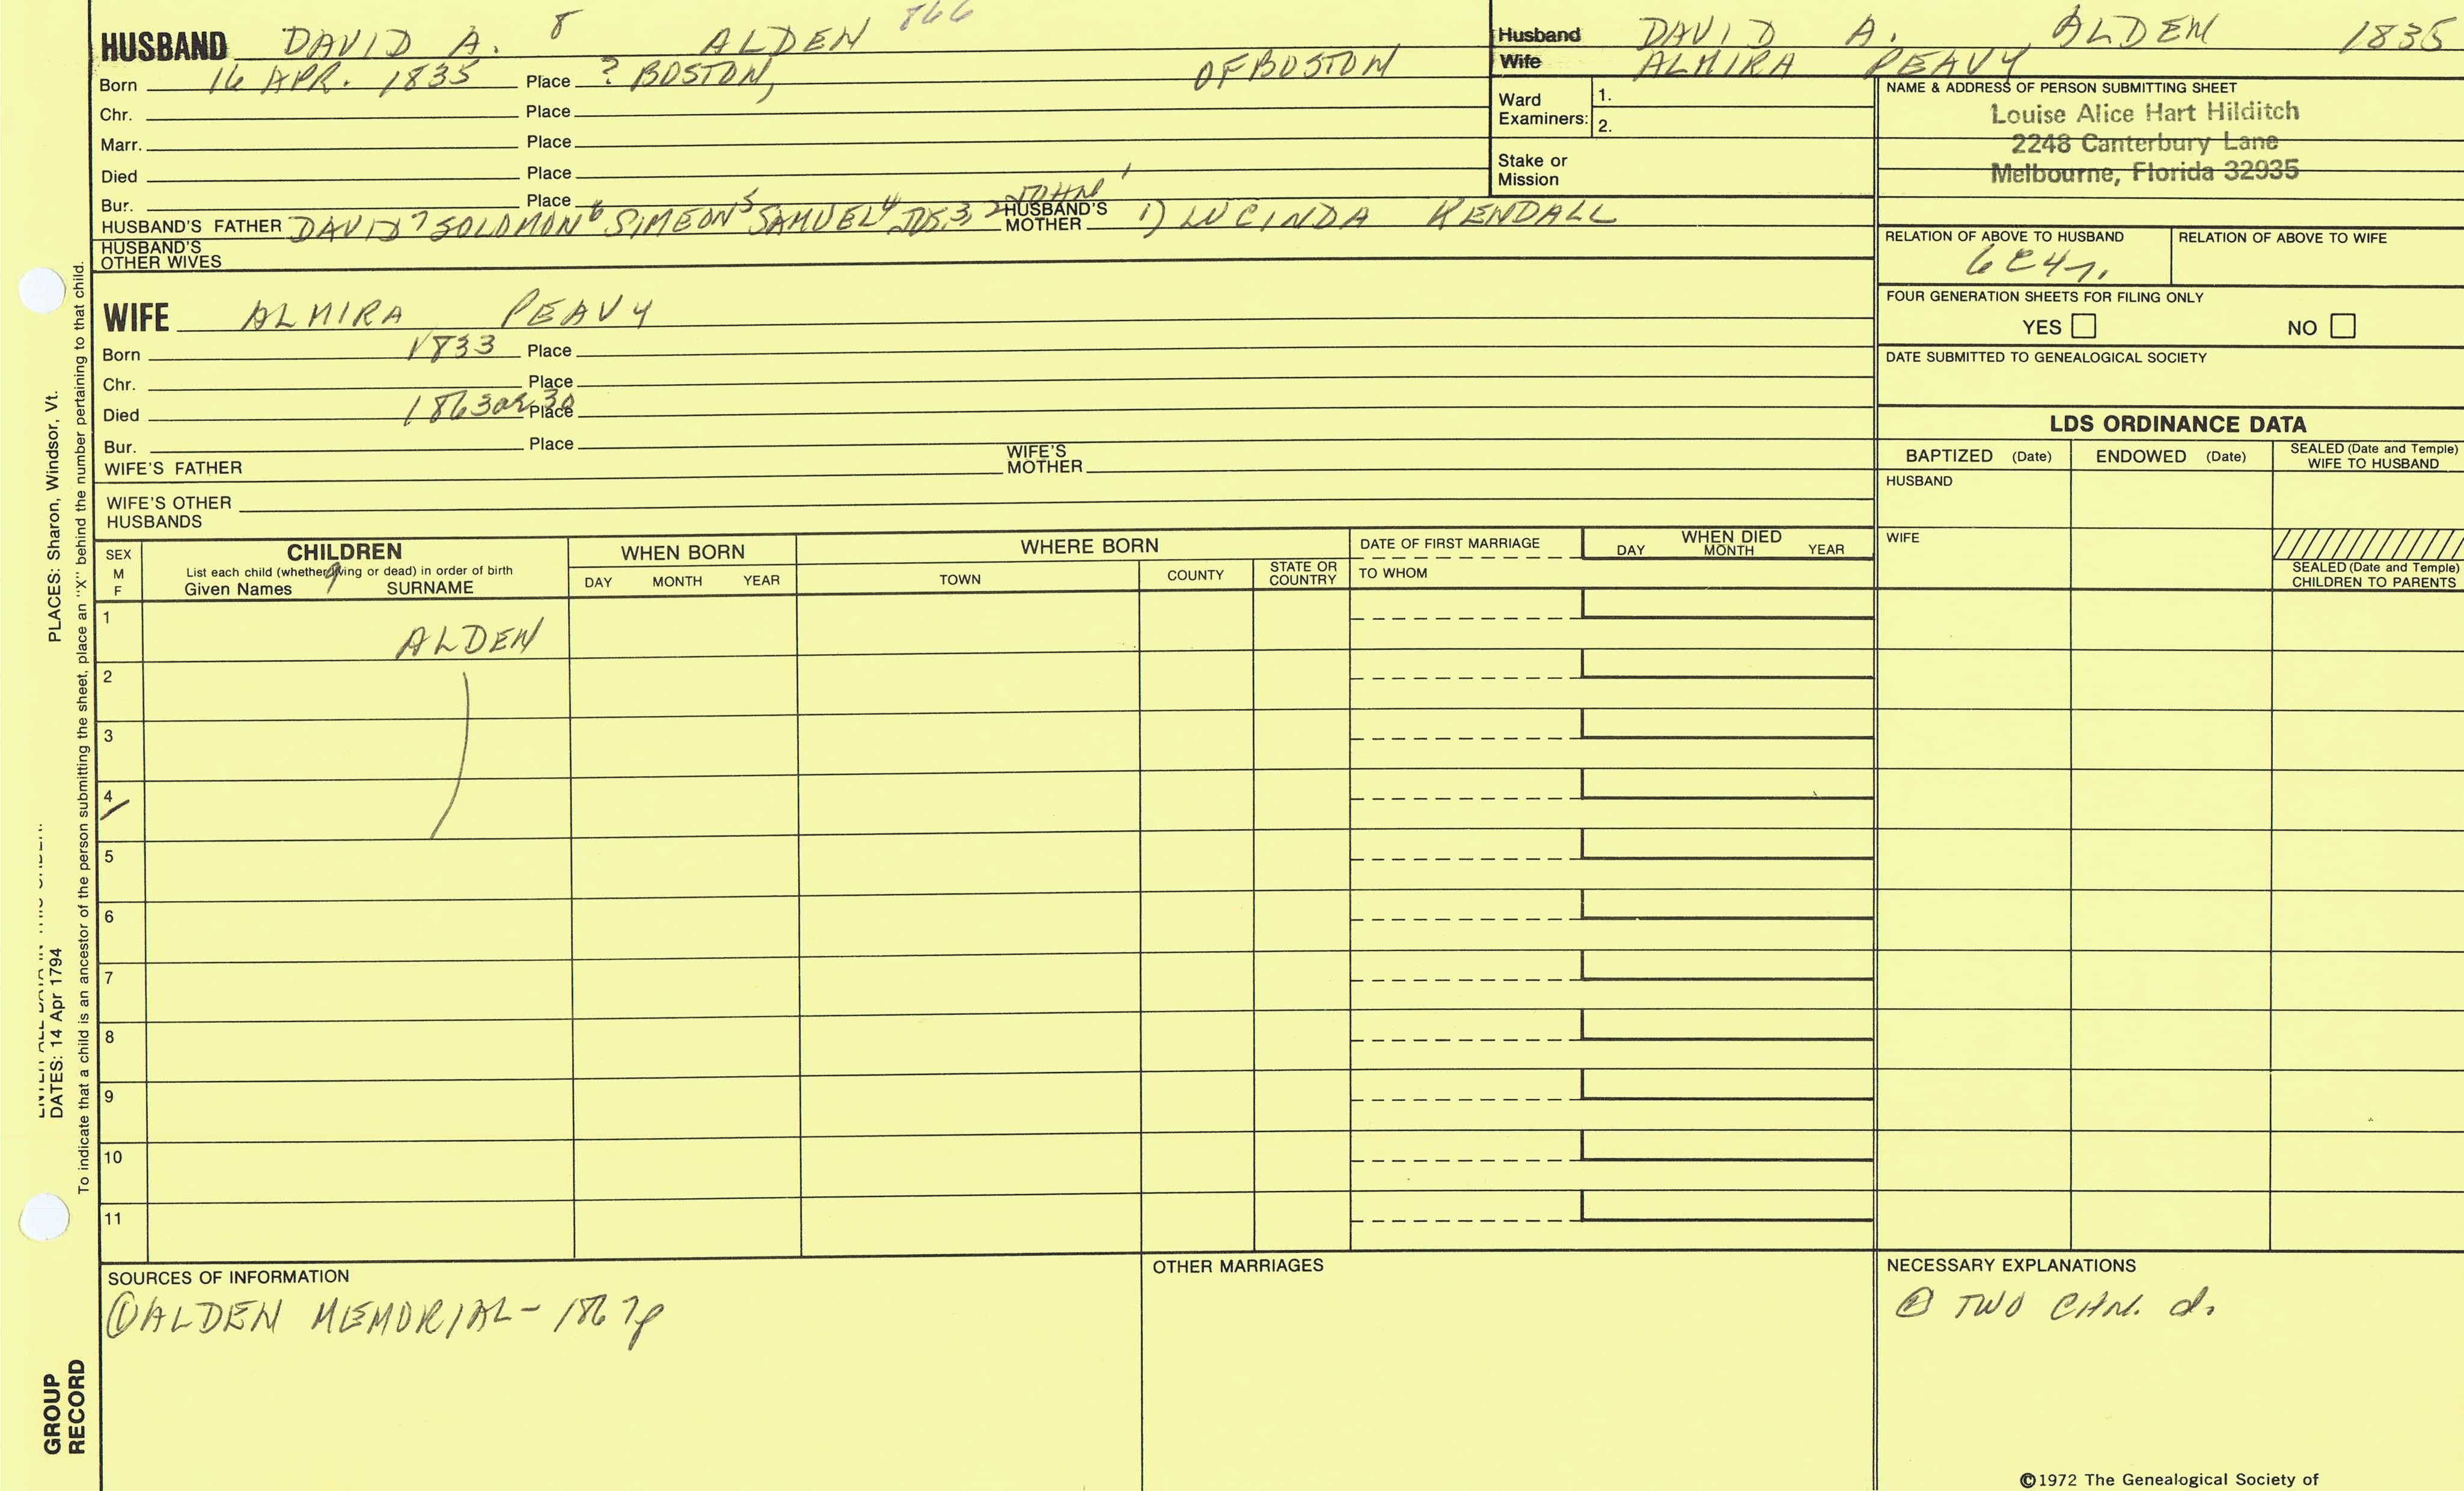 HUSBAND DAVID A. 8 ALDEN 866
Born 16 APR. 1835 Place ? BOSTON, OF BOSTON
Chr. Place
Marr. Place
Died Place
Bur. Place
HUSBAND'S FATHER DAVID 7 SOLOMON 6 SIMEON 5 SAMUEL 4 JOS. 3, 2 JOHN 1 HUSBAND'S MOTHER 1) LUCINDA KENDALL
HUSBAND'S OTHER WIVES
Husband DAVID A. ALDEN 1835
Wife ALMIRA PEAVY
Ward Examiners: 1.
2.
Stake or Mission
NAME & ADDRESS OF PERSON SUBMITTING SHEET
Louise Alice Hart Hilditch
2248 Canterbury Lane
Melbourne, Florida 32935
RELATION OF ABOVE TO HUSBAND
RELATION OF ABOVE TO WIFE
FOUR GENERATION SHEETS FOR FILING ONLY
YES NO
DATE SUBMITTED TO GENEALOGICAL SOCIETY
WIFE ALMIRA PEAVY
Born 1833 Place
Chr. Place
Died 1863 ae 30 Place
Bur. Place
WIFE'S FATHER WIFE'S MOTHER
WIFE'S OTHER HUSBANDS
LDS ORDINANCE DATA
BAPTIZED (Date) ENDOWED (Date) SEALED (Date and Temple) WIFE TO HUSBAND
HUSBAND
WIFE
SEALED (Date and Temple) CHILDREN TO PARENTS
SEX M F
CHILDREN
List each child (whether living or dead) in order of birth
Given Names 9 SURNAME
WHEN BORN
DAY MONTH YEAR
WHERE BORN
TOWN COUNTY STATE OR COUNTRY
DATE OF FIRST MARRIAGE
TO WHOM
WHEN DIED
DAY MONTH YEAR
1 ALDEN
2
3
4
5
6
7
8
9
10
11
SOURCES OF INFORMATION
① ALDEN MEMORIAL - 1867 p
OTHER MARRIAGES
NECESSARY EXPLANATIONS
TWO CHN. d.
©1972 The Genealogical Society of
PLACES: Sharon, Windsor, Vt.
DATES: 14 Apr 1794
To indicate that a child is an ancestor of the person submitting the sheet, place an "X" behind the number pertaining to that child.
GROUP RECORD